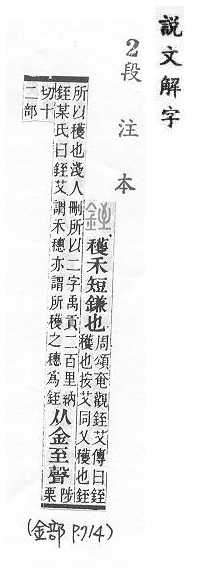 説文解字
2段注本
銍 穫禾短鎌也 周頌奄觀銍艾傳曰銍
穫也按艾同乂穫也銍
所以穫也淺人刪所以二字禹貢二百里納
銍某氏曰銍艾謂禾穗亦謂所穫之穗爲銍 从金至聲 陟
栗
切十
二部
(金部 P.714)